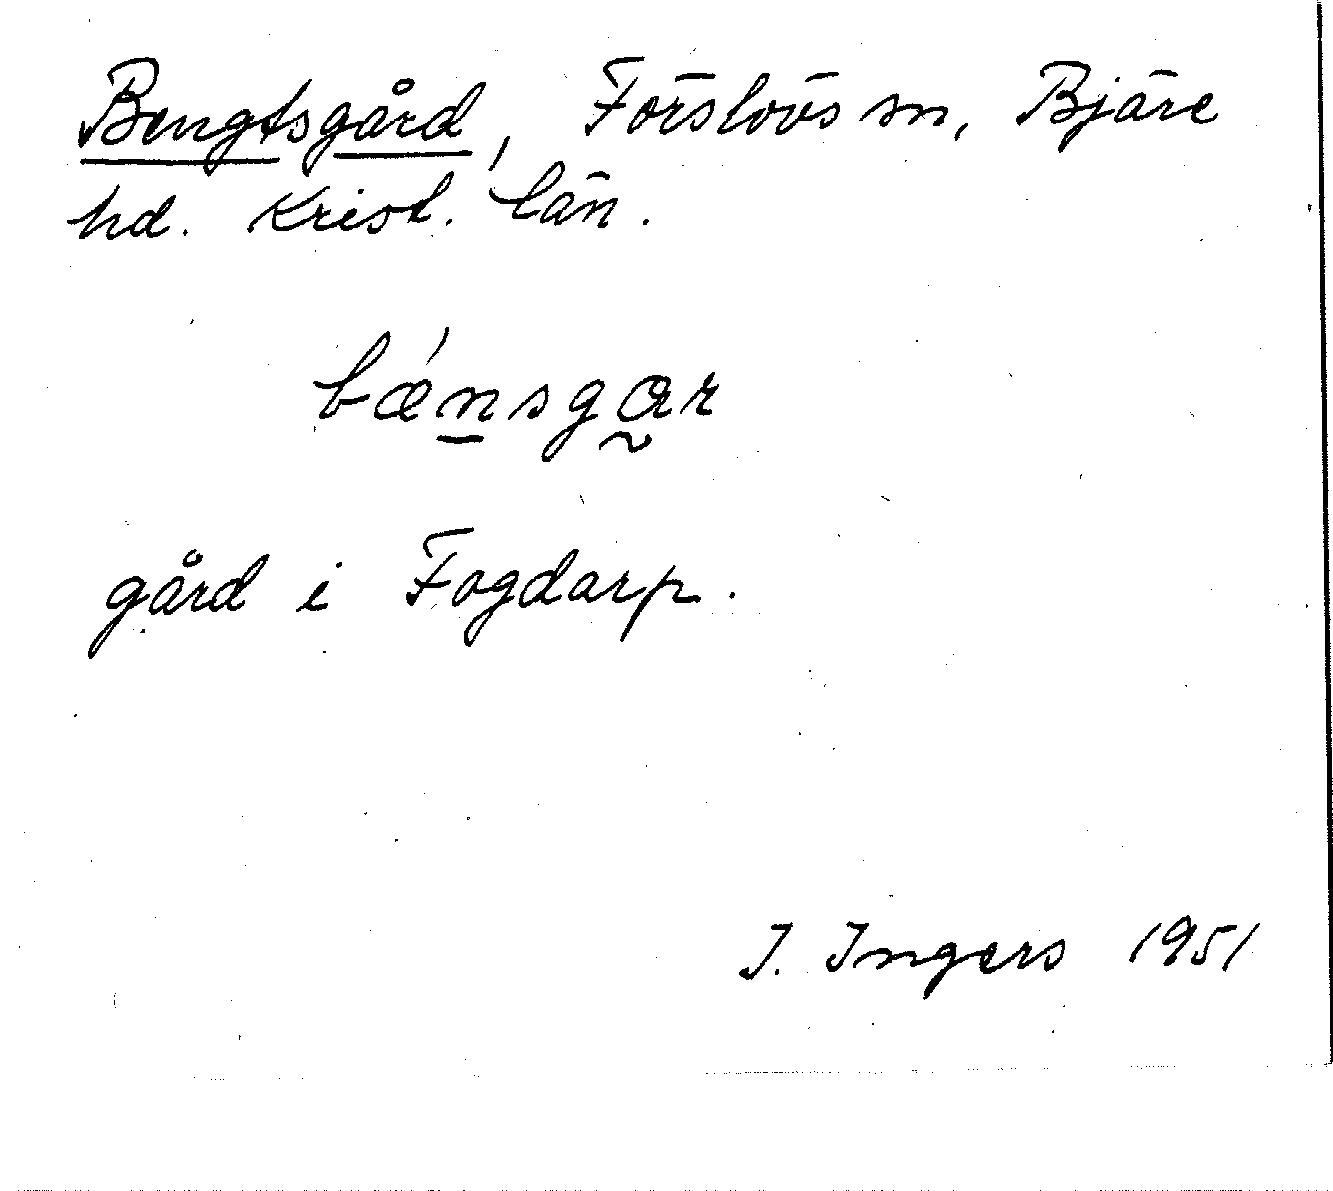 Bengtsgård, Förslövs sn, Bjäre
hd. Krist. län.
bǽn̲sgɑ̰r
gård i Fogdarp.
I. Ingers 1951